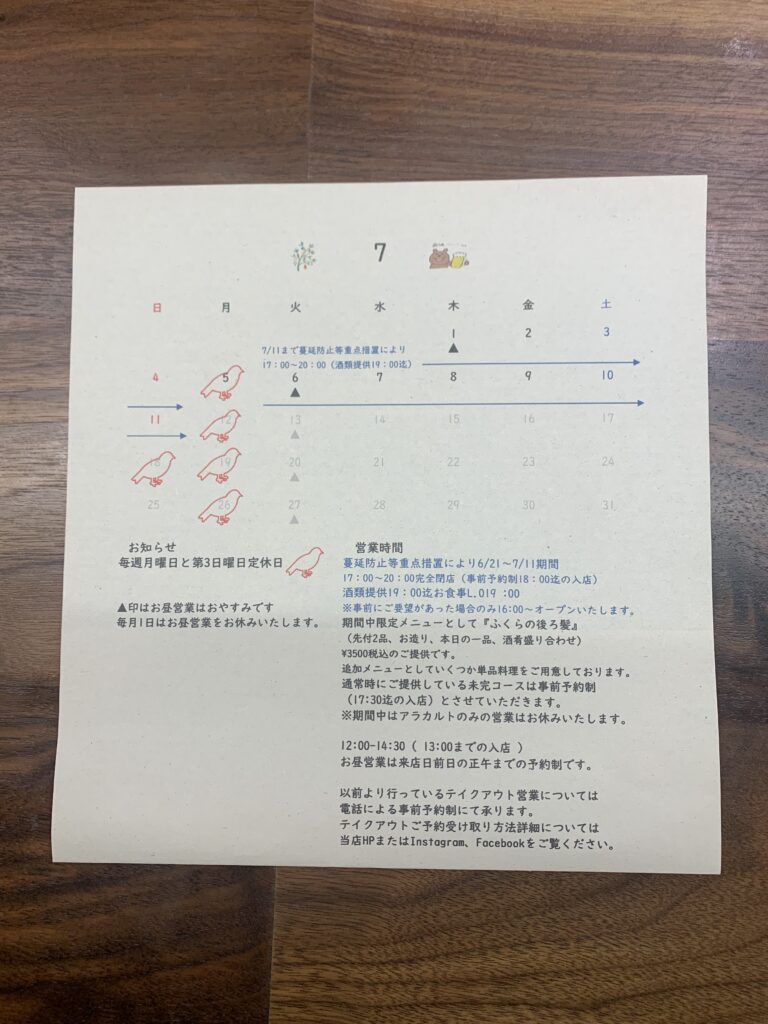 7
日 月 火 水 木 金 土
1 2 3
▲
7/11まで蔓延防止等重点措置により
17：00～20：00（酒類提供19：00迄）
4 5 6 7 8 9 10
▲
11 12 13 14 15 16 17
▲
18 19 20 21 22 23 24
▲
25 26 27 28 29 30 31
▲
お知らせ
毎週月曜日と第3日曜日定休日
▲印はお昼営業はおやすみです
毎月1日はお昼営業をお休いたします。
営業時間
蔓延防止等重点措置により6/21～7/11期間
17：00～20：00完全閉店（事前予約制18：00迄の入店）
酒類提供19：00迄お食事L.O19：00
※事前にご要望があった場合のみ16:00～オープンいたします。
期間中限定メニューとして『ふくらの後ろ髪』
（先付2品、お造り、本日の一品、酒肴盛り合わせ）
¥3500税込のご提供です。
追加メニューとしていくつか単品料理をご用意しております。
通常時にご提供している未完コースは事前予約制
（17:30迄の入店）とさせていただきます。
※期間中はアラカルトのみの営業はお休みいたします。
12:00-14:30（ 13:00までの入店 ）
お昼営業は来店日前日の正午までの予約制です。
以前より行っているテイクアウト営業については
電話による事前予約制にて承ります。
テイクアウトご予約受け取り方法詳細については
当店HPまたはInstagram、Facebookをご覧ください。